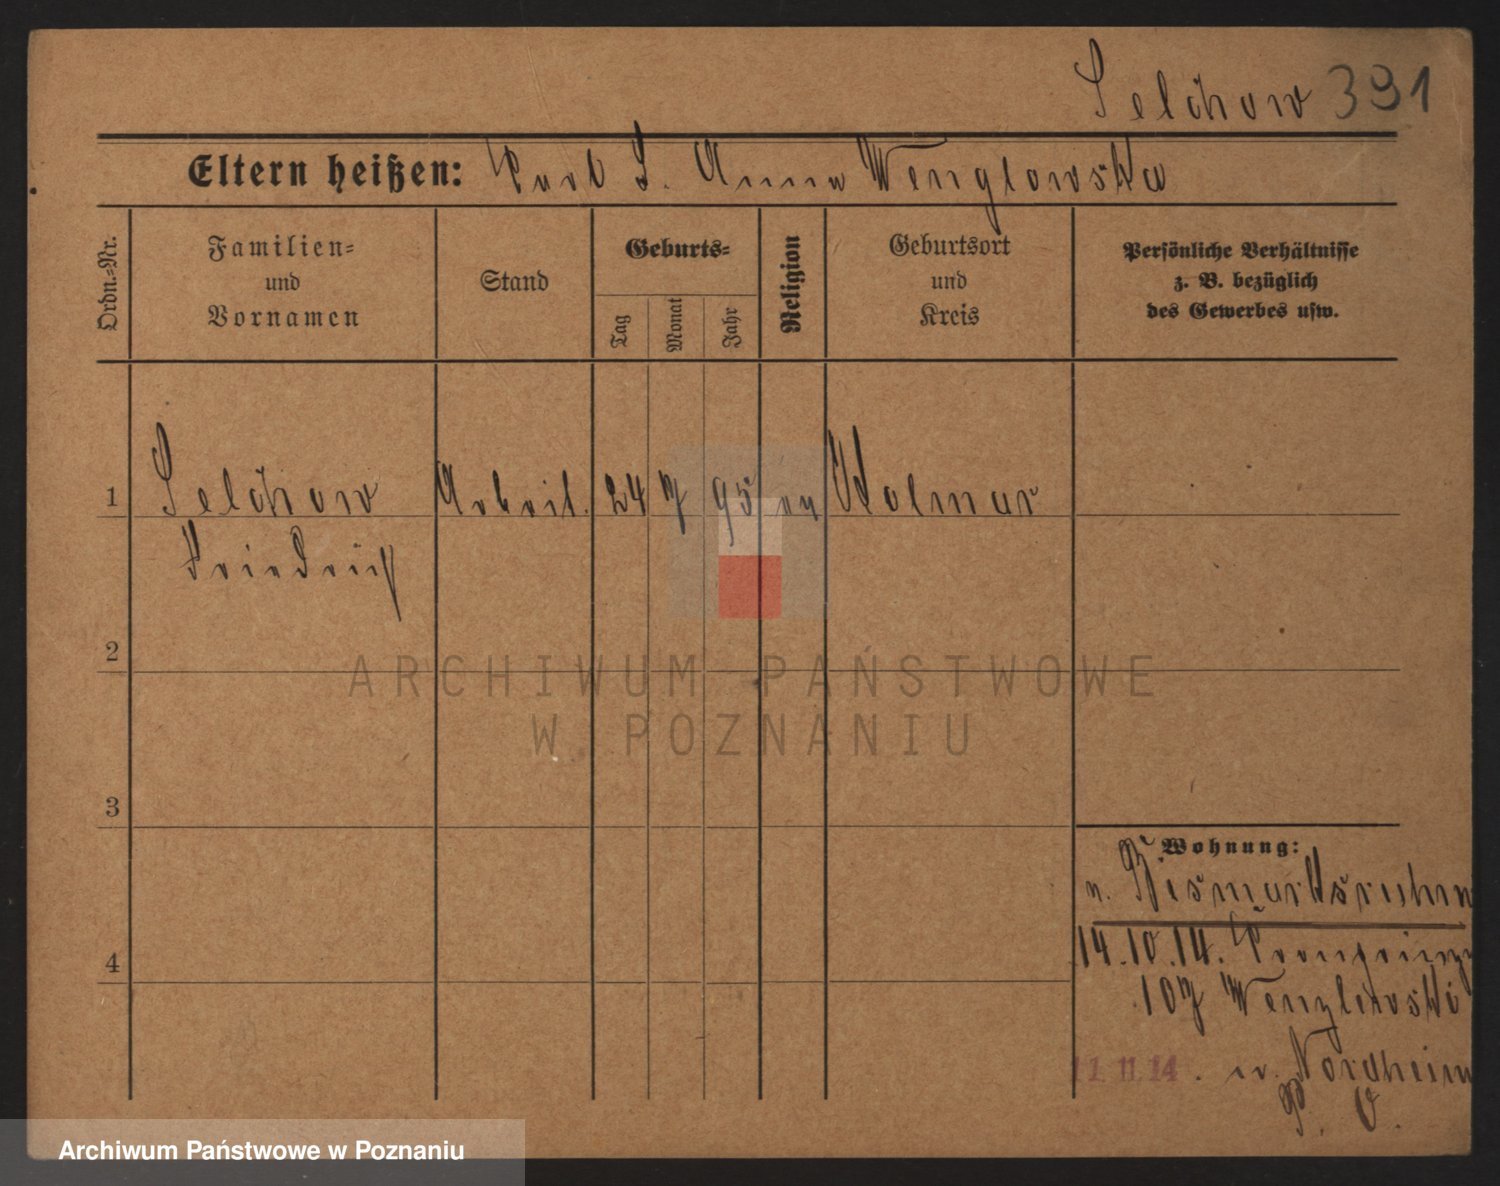 Selchow 391
Eltern heißen: Karl S. Anna Wenglowska
Ordn.-Nr.
Familien-
und
Vornamen
Stand
Geburts-
Tag
Monat
Jahr
Religion
Geburtsort
und
Kreis
Persönliche Verhältnisse
z. B. bezüglich
des Gewerbes usw.
1 Selchow Arbeit. 24 7 95 ev Kolmar
Friedrich
2
3
4
Wohnung:
n. Bismarksruhm
14.10.14. Kronprinz
107 Wenzlewski
11.11.14. n. Nordheim
P. O.
ARCHIWUM PAŃSTWOWE
W POZNANIU
Archiwum Państwowe w Poznaniu